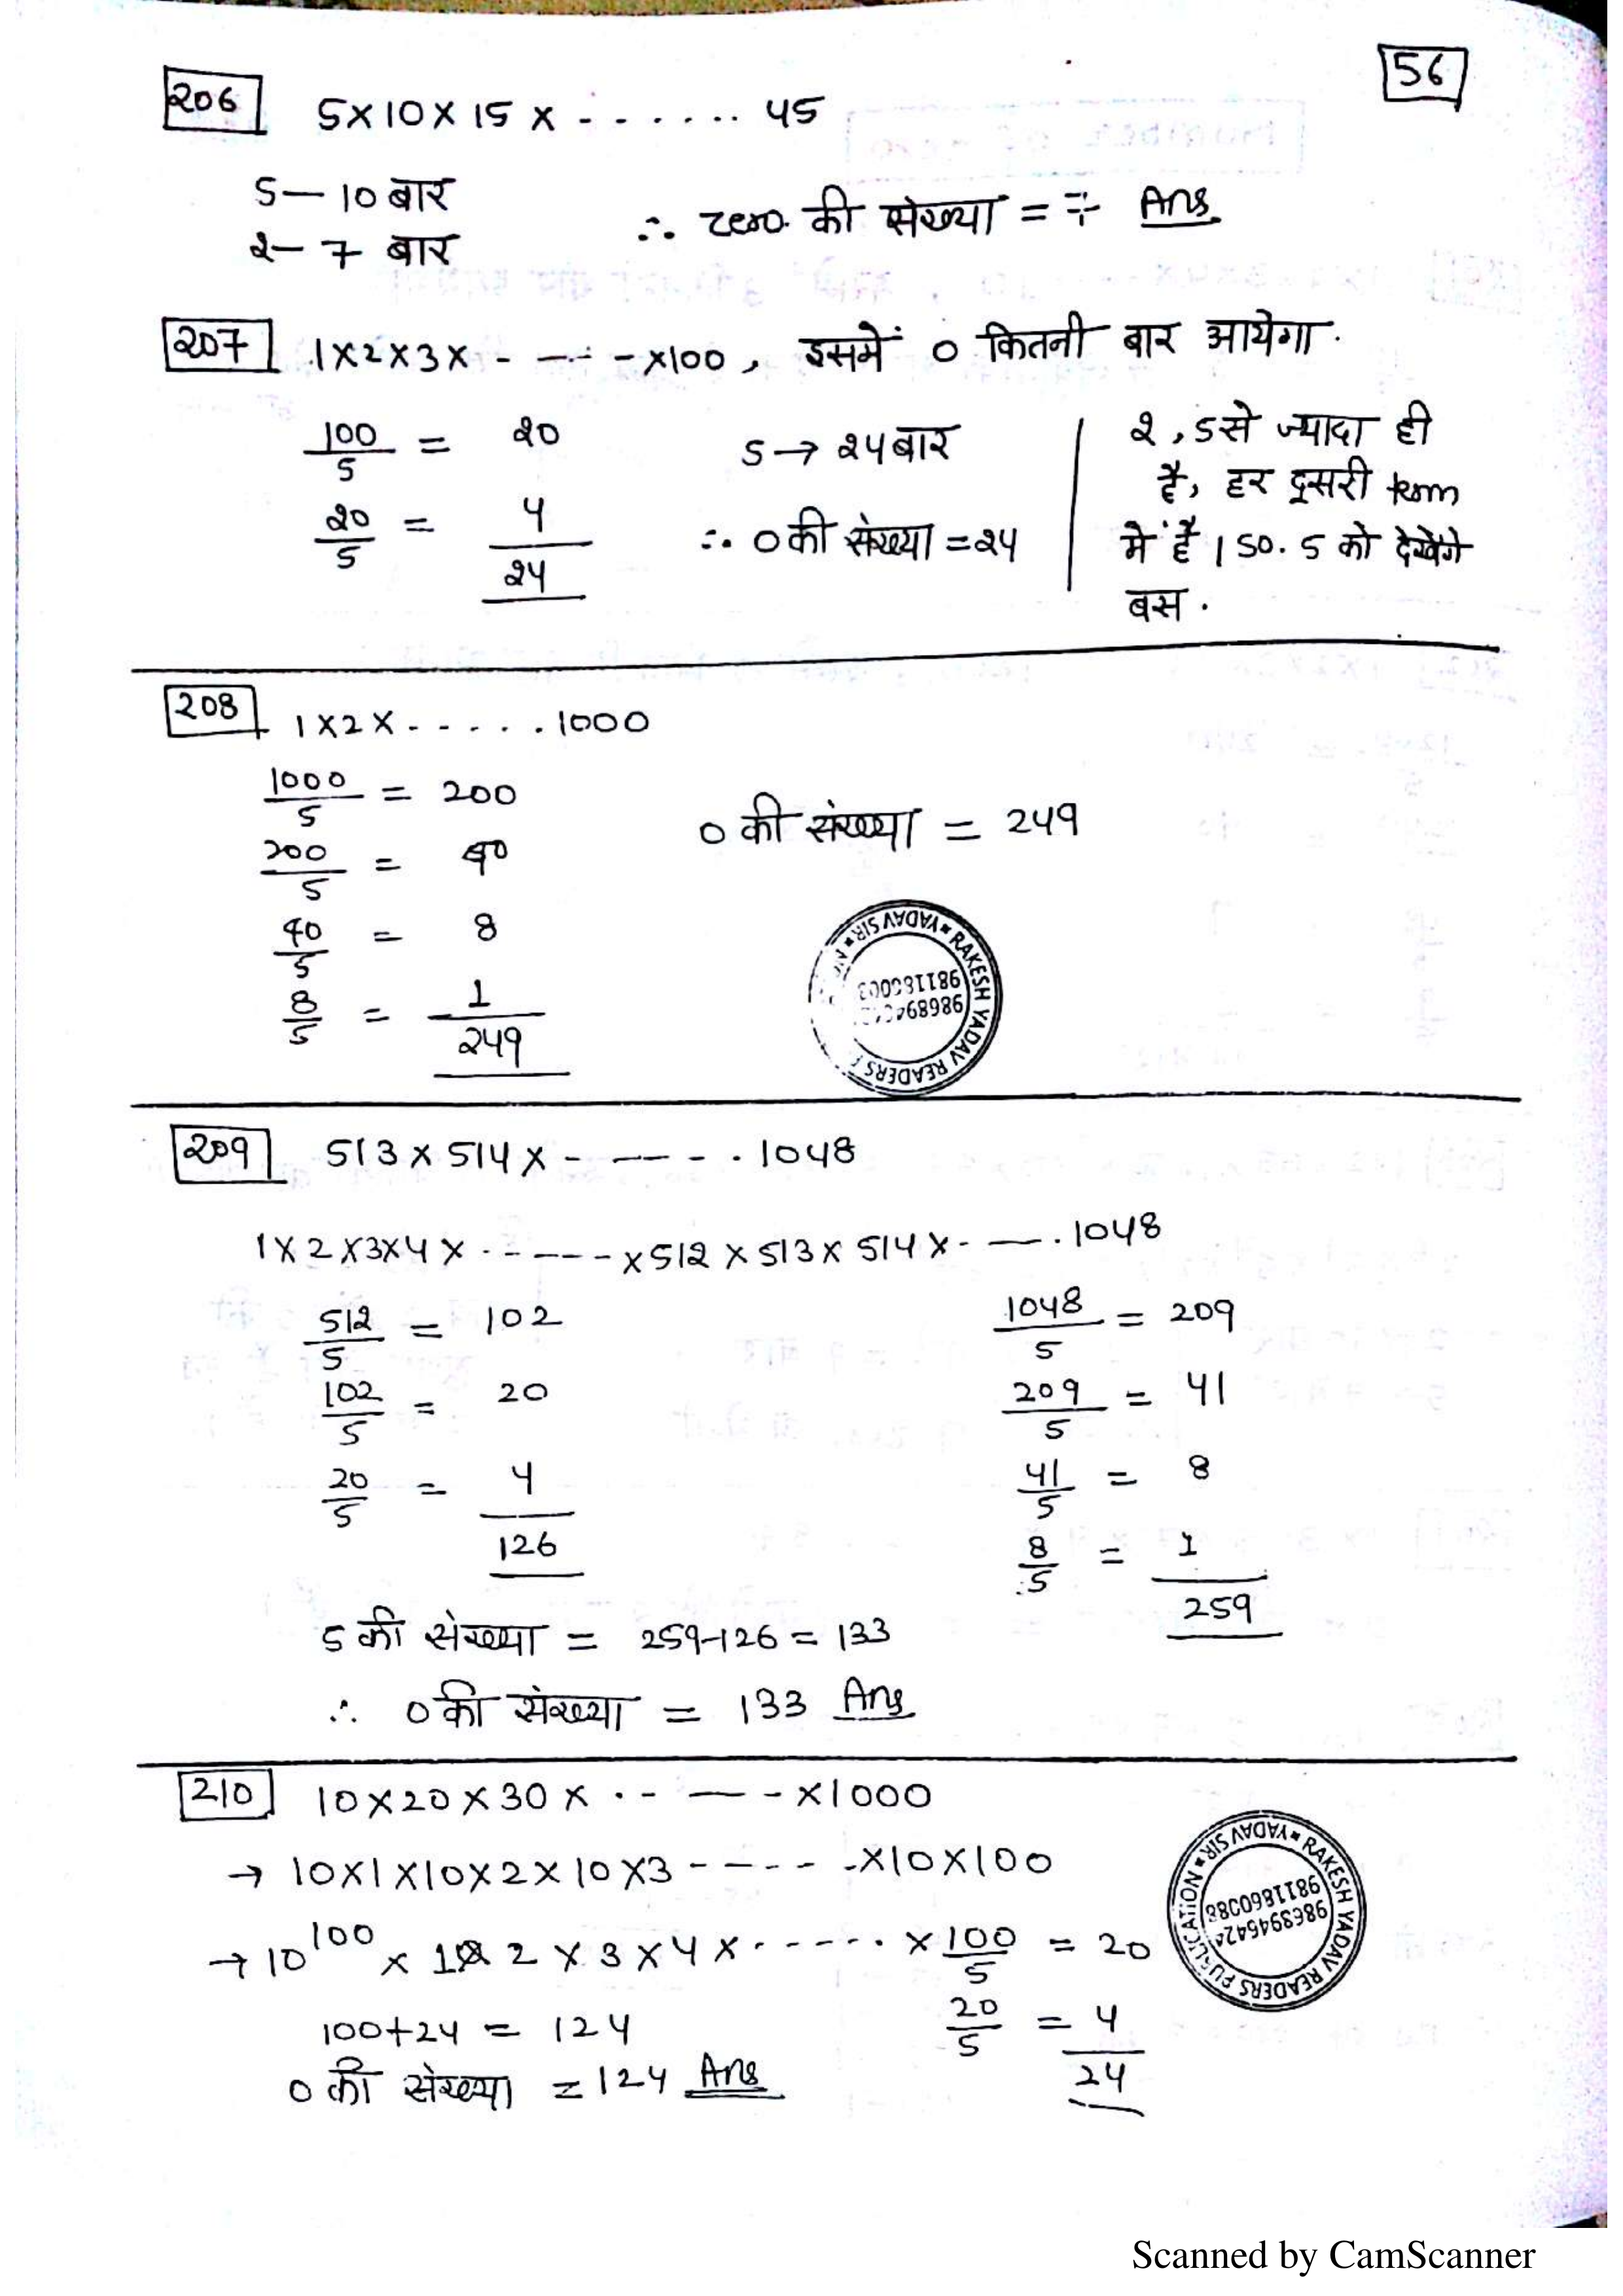 56
206 5×10×15× - - . . . .. 45
5— 10 बार
2— 7 बार
∴ zero. की संख्या = 7 Ans
207 1×2×3× - — - - ×100, इसमें 0 कितनी बार आयेगा.
100/5 = 20
20/5 = 4
24
5→ 24बार
∴ 0 की संख्या = 24
2, 5 से ज्यादा ही
है, हर दूसरी term
में है। so. 5 को देखेंगे
बस.
208 1×2×- - - . . .1000
1000/5 = 200
200/5 = 40
40/5 = 8
8/5 = 1
249
0 की संख्या = 249
RAKESH YADAV READERS
YADAV SIR
209 513×514×- —-- - . 1048
1×2×3×4× - - ---- ×512×513×514×- —. 1048
512/5 = 102
102/5 = 20
20/5 = 4
126
1048/5 = 209
209/5 = 41
41/5 = 8
8/5 = 1
259
5 की संख्या = 259-126 = 133
∴ 0 की संख्या = 133 Ans
210 10×20×30× . - —- - ×1000
→ 10×1×10×2×10×3 - - - - - ×10×100
→ 10^100 × 1× 2 × 3 × 4 × - - - - - . × 100/5 = 20
20/5 = 4
24
100+24 = 124
0 की संख्या = 124 Ans
RAKESH YADAV READERS PUBLICATION
YADAV SIR
Scanned by CamScanner